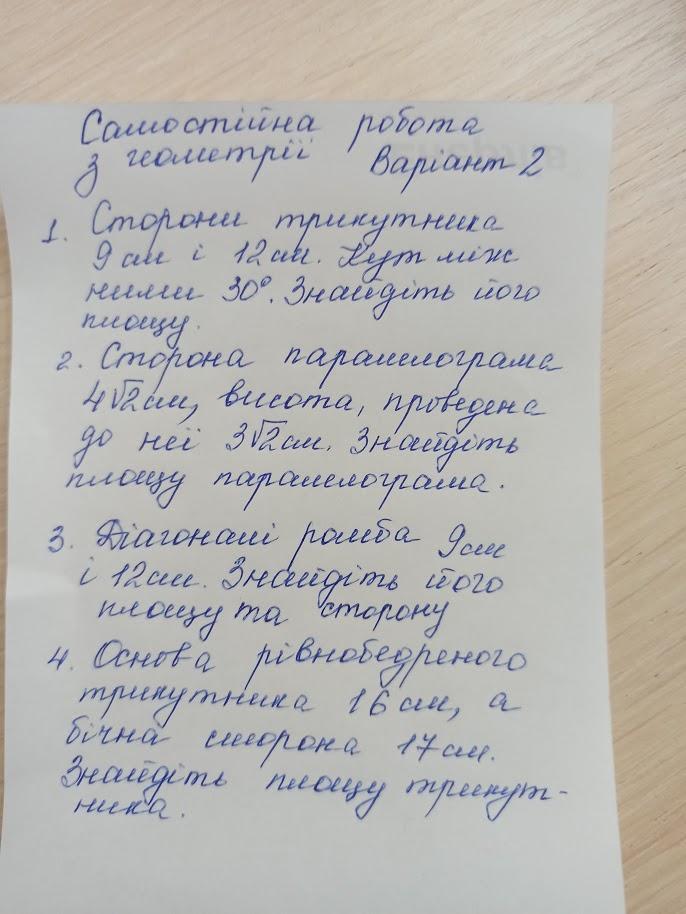 Самостійна робота
з геометрії Варіант 2
1. Сторони трикутника
9 см і 12 см. Кут між
ними 30°. Знайдіть його
площу.
2. Сторона паралелограма
4√2 см, висота, проведена
до неї 3√2 см. Знайдіть
площу паралелограма.
3. Діагоналі ромба 9 см
і 12 см. Знайдіть його
площу та сторону
4. Основа рівнобедреного
трикутника 16 см, а
бічна сторона 17 см.
Знайдіть площу трикут-
ника.